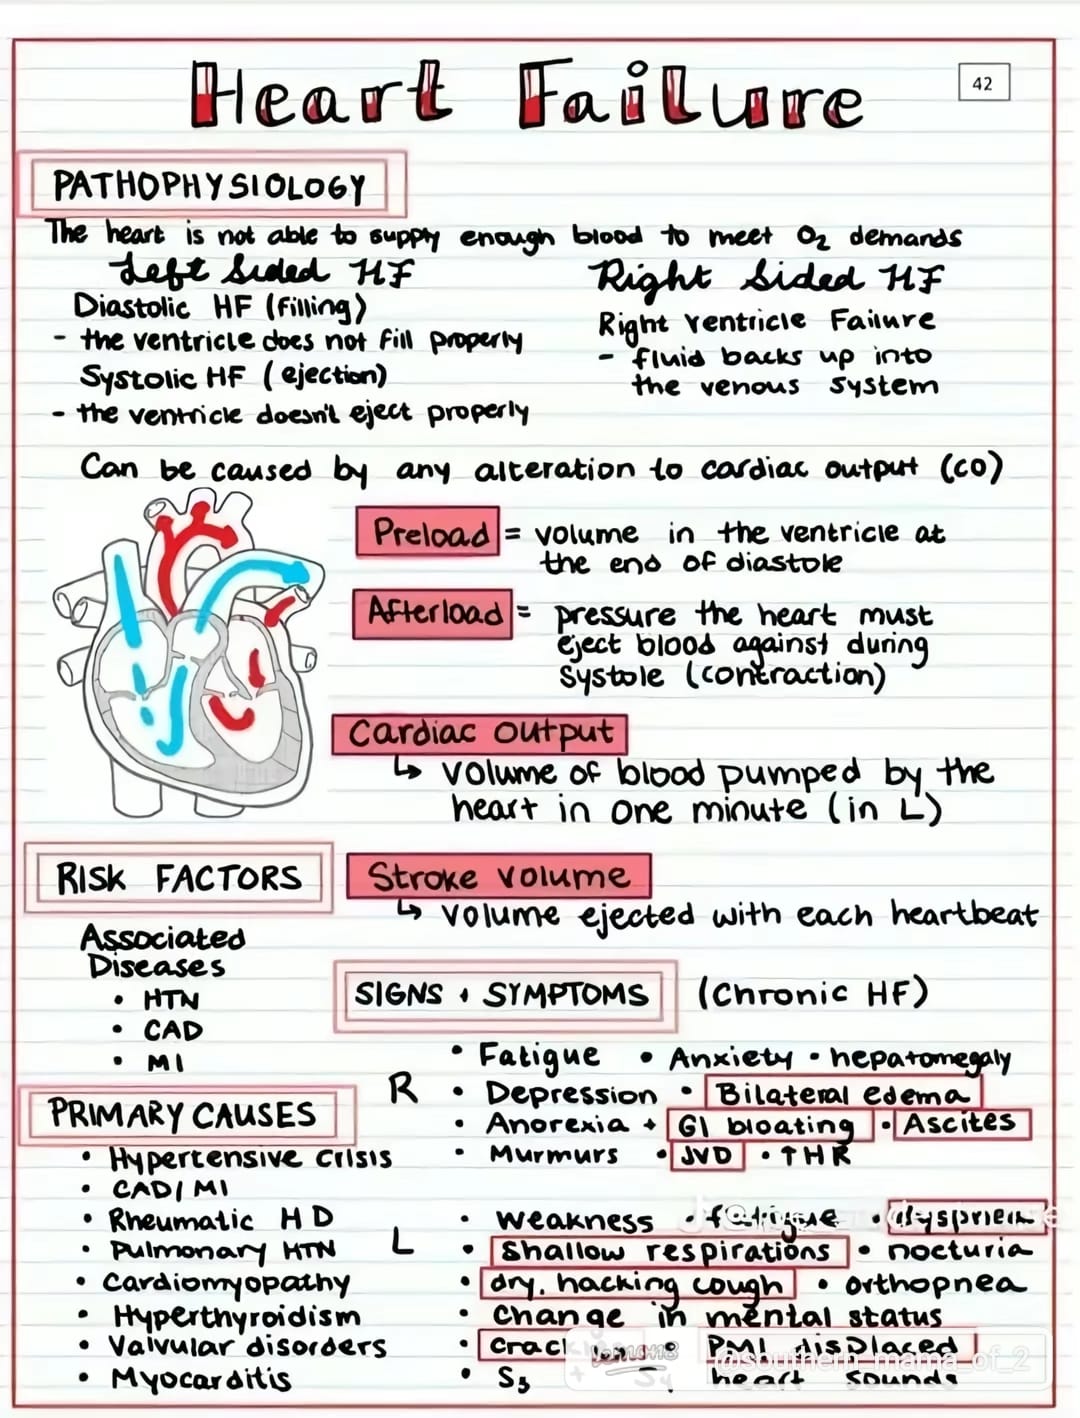 Heart Failure
42
PATHOPHYSIOLOGY
The heart is not able to supply enough blood to meet O2 demands
Left Sided HF
Diastolic HF (filling)
- the ventricle does not fill properly
Systolic HF (ejection)
- the ventricle doesn't eject properly
Right Sided HF
Right ventricle Failure
- fluid backs up into
the venous system
Can be caused by any alteration to cardiac output (CO)
Preload = volume in the ventricle at
the end of diastole
Afterload = pressure the heart must
eject blood against during
systole (contraction)
Cardiac output
↳ volume of blood pumped by the
heart in one minute (in L)
Stroke volume
↳ volume ejected with each heartbeat
RISK FACTORS
Associated
Diseases
• HTN
• CAD
• MI
PRIMARY CAUSES
• Hypertensive crisis
• CAD/MI
• Rheumatic HD
• Pulmonary HTN
• Cardiomyopathy
• Hyperthyroidism
• Valvular disorders
• Myocarditis
SIGNS + SYMPTOMS (Chronic HF)
R
• Fatigue • Anxiety • hepatomegaly
• Depression • Bilateral edema
• Anorexia + GI bloating • Ascites
• Murmurs • JVD • ↑HR
L
• weakness • fatigue • dyspnea
• Shallow respirations • nocturia
• dry, hacking cough • orthopnea
• change in mental status
• PMI displaced
• S3 + S4 heart sounds
@southern_mama_of_2